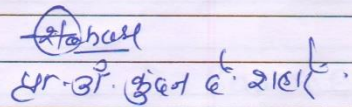 प्रा. डॉ. कुंदन दे. शहारे.